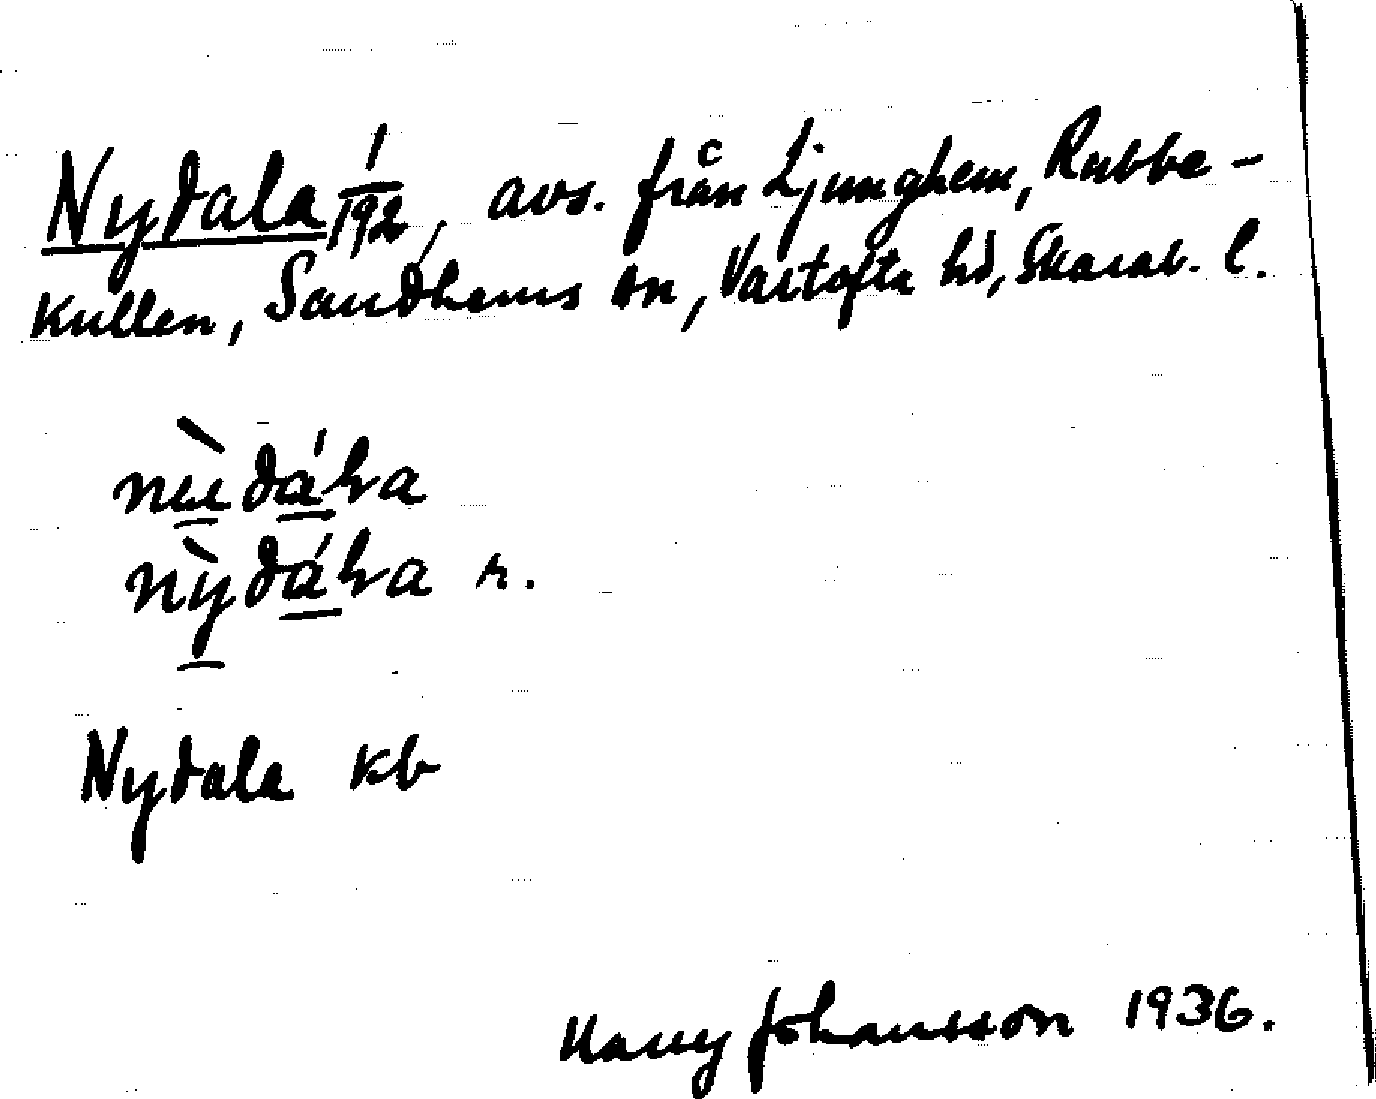 Nydala 1/192, avs. från Ljunghem, Rubbe-
kullen, Sandhems sn, Vartofta hd, Skarab. l.
nùdáɫa
nỳdáɫa r.
Nydala kb
Harry Johansson 1936.